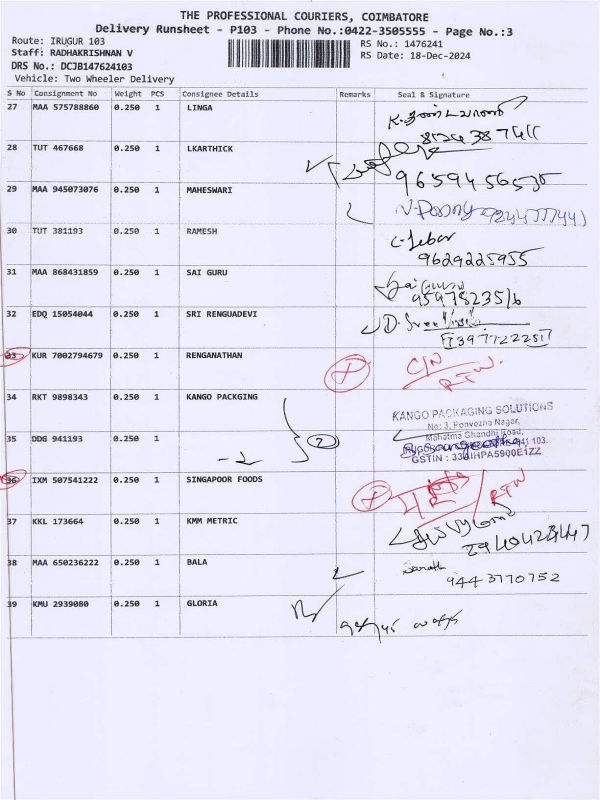 THE PROFESSIONAL COURIERS, COIMBATORE
Delivery Runsheet - P103 - Phone No.:0422-3505555 - Page No.:3
Route: IRUGUR 103
RS No.: 1476241
Staff: RADHAKRISHNAN V
RS Date: 18-Dec-2024
DRS No.: DCJB147624103
Vehicle: Two Wheeler Delivery
S No Consignment No Weight PCS Consignee Details Remarks Seal & Signature
27 MAA 575788860 0.250 1 LINGA
28 TUT 467668 0.250 1 LKARTHICK
9659456535
29 MAA 945073076 0.250 1 MAHESWARI
30 TUT 381193 0.250 1 RAMESH
9629225955
31 MAA 868431859 0.250 1 SAI GURU
Sai Guru
32 EDQ 15054044 0.250 1 SRI RENGUADEVI
7397722251
33 KUR 7002794679 0.250 1 RENGANATHAN
C/N
RTW.
34 RKT 9898343 0.250 1 KANGO PACKGING
KANGO PACKAGING SOLUTIONS
No: 3, Ponvezha Nagar,
Mahatma Ghandhi Road,
35 DDG 941193 0.250 1
2
36 IXM 507541222 0.250 1 SINGAPOOR FOODS
RTW
37 KKL 173664 0.250 1 KMM METRIC
38 MAA 650236222 0.250 1 BALA
9443770752
39 KMU 2939080 0.250 1 GLORIA